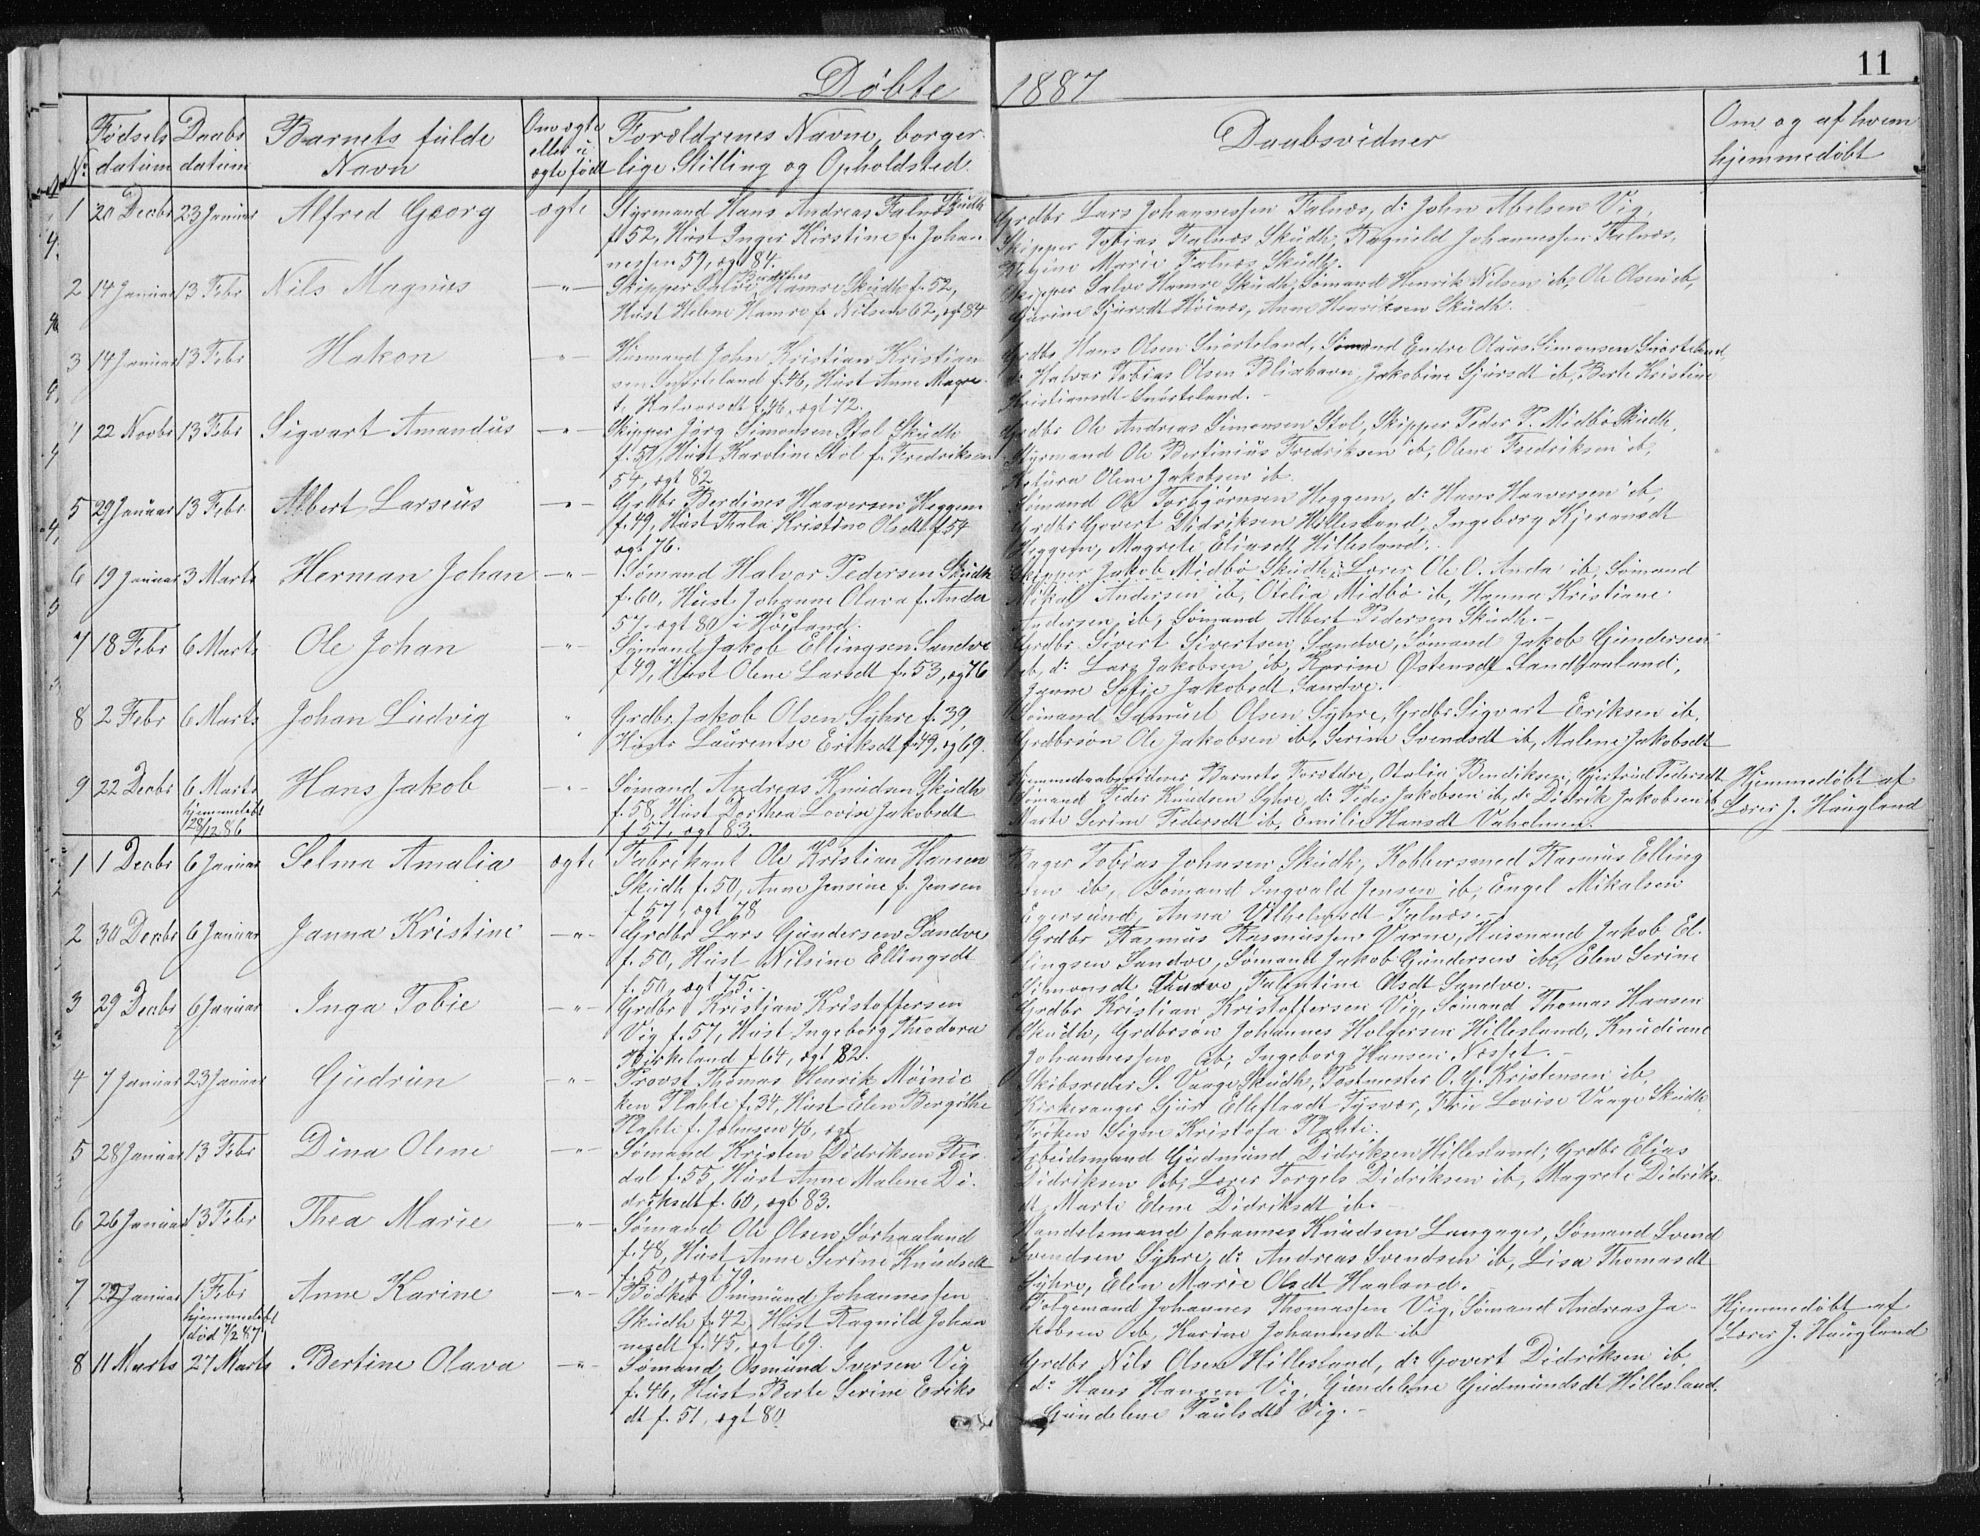 11
Døbte 1887
No
Fødsels datum
Daabs datum
Barnets fulde Navn
Om ægte eller uægte født
Forældrenes Navne, borgerlige Stilling og Opholdsted
Daabsvidner
Om og af hvem hjemmedøbt
1 20 Decbr 23 Januar Alfred Georg ægte
Styrmand Hans Andreas Falnæs Skudh
f. 52, Hust Inger Kirstine f. Johan
nessen 59, ægt 84.
Grdbr Lars Johannessen Falnæs, do John Abelsen Vig,
Skipper Tobias Falnæs Skudh, Ragnild Johannessen Falnæs,
Marie Falnæs Skudh.
2 14 Januar 13 Febr Nils Magnus -"-
Skipper Salve Hamre Skudh f. 52,
Hust Helene Hamre f. Nilsen 62, ægt 84
Skipper Salve Hamre Skudh, Sømand Henrik Nilsen ib, Ole Olsen ib,
Gurine Sjursdt Høinæs, Anne Henriksen Skudh.
3 14 Januar 13 Febr Hakon -"-
Husmand John Kristian Kristian
sen Snørteland f. 46, Hust Anne Magre
te Halvorsdt f. 46, ægt 72.
Grdbr Hans Olsen Snørteland, Sømand Endre Olaus Simonsen Snørteland,
do Halvor Tobias Olsen Blixhavn, Jakobine Sjursdt ib, Berte Kristine
Kristiansdt Snørteland.
4 22 Novbr 13 Febr Sigvart Amandus -"-
Skipper Jørg Simonsen Stol Skudh
f. 51, Hust Karoline Stol f. Fredriksen
54, ægt 82
Grdbr Ole Andreas Simonsen Stol, Skipper Peder P. Midbø Skudh,
Styrmand Ole Bertinius Fredriksen ib, Olene Fredriksen ib,
Ketura Olene Jakobsen ib.
5 29 Januar 13 Febr Albert Larsius -"-
Grdbr Berdines Haaversen Heggem
f. 49, Hust Thala Kristine Olsdt f. 54
ægt 76.
Sømand Ole Torbjørnsen Heggem, do Hans Haaversen ib,
Grdbr Govert Didriksen Hillesland, Ingeborg Kjeransdt
Heggem, Magrete Eliasdt Hillesland.
6 19 Januar 3 Marts Herman Johan -"-
Sømand Halvor Pedersen Skudh
f. 60, Hust Johanne Olava f. Ander
57, ægt 80 i Høiland.
Skipper Jakob Midbø Skudh, Lærer Ole O. Anda ib, Sømand
Mikal Andersen ib, Otelia Midbø ib, Hanna Kristiane
Andersen ib, Sømand Albert Pedersen Skudh.
7 18 Febr 6 Marts Ole Johan -"-
Sømand Jakob Ellingsen Sandve
f. 49, Hust Olene Larsdt f. 53, ægt 76
Grdbr Sivert Sivertsen Sandve, Sømand Jakob Gundersen
ib, do Lars Jakobsen ib, Karine Østensdt Sandhaaland,
Janne Sofie Jakobsdt Sandve.
8 2 Febr 6 Marts Johan Ludvig "
Grdbr Jakob Olsen Syhre f. 39,
Hustr Laurentse Eriksdt f. 49, ægt 69.
Sømand Samuel Olsen Syhre, Grdbr Sigvart Eriksen ib,
Grdbrsøn Ole Jakobsen ib, Serine Svendsdt ib, Malene Jakobsdt
9 22 Decbr 6 Marts Hans Jakob -"-
hjemmedøbt
28/12 86
Sømand Andreas Knudsen Skudh
f. 58, Hust Dorthea Lovise Jakobsdt
f. 57, ægt 83.
Hjemmedaabsvidner Barnets Forældre, Otalia Bendiksen, Gjertrud Pedersdt
Sømand Peder Knudsen Syhre, do Peder Jakobsen ib, do Didrik Jakobsen ib,
Marte Serine Pedersdt ib, Emilie Hansdt Vaholmen.
Hjemmedøbt af
Lærer J. Haugland
1 1 Decbr 6 Januar Selma Amalia ægte
Fabrikant Ole Kristian Hansen
Skudh f. 50, Anne Jensine f. Jensen
f. 57, ægt 78
Bager Tobias Johnsen Skudh, Kobbersmed Rasmus Elling
sen ib, Sømand Ingvald Jensen ib, Engel Mikalsen
Egersund, Anna Vilhelmsdt Falnæs.
2 30 Decbr 6 Januar Janna Kristine -"-
Grdbr Lars Gundersen Sandve
f. 50, Hust Nilsine Ellingsdt
f. 50, ægt 75.
Grdbr Rasmus Rasmussen Varne, Husmand Jakob El-
lingsen Sandve, Sømand Jakob Gundersen ib, Elen Serine
Simonsdt Sandve, Talentine Olsdt Sandve.
3 29 Decbr 6 Januar Inga Tobie -"-
Grdbr Kristian Kristoffersen
Vig f. 57, Hust Ingeborg Theodora
Birkeland f. 64, ægt 82.
Grdbr Kristian Kristoffersen Vig, Sømand Thomas Hansen
Skudh, Grdbrsøn Johannes Holgersen Hillesland, Knudiane
Johannessen ib, Ingeborg Hansen Næsset.
4 7 Januar 23 Januar Gudrun -"-
Provst Thomas Henrik Møinic
ken Plahte f. 34, Hust Elen Bergithe
Plahte f. Johnsen 46, ægt
Skibsreder S. Vaage Skudh, Postmester O. G. Kristensen ib,
Kirkesanger Sjur Elleflaadt Tysvær, Fru Lovise Vaage Skudh,
Frøken Signe Kristofa Plahte.
5 28 Januar 13 Febr Dina Olene -"-
Sømand Kristen Didriksen Fis
dal f. 55, Hust Anne Malene Di-
driksdt f. 60, ægt 83.
Arbeidsmand Gudmund Didriksen Hillesland, Grdbr Elias
Didriksen ib, Lærer Torgels Didriksen ib, Magrete Didriks-
dt, Marte Elene Didriksdt ib.
6 26 Januar 13 Febr Thea Marie -"-
Sømand Ole Olsen Sørhaaland
f. 48, Hust Anne Serine Knudsdt
f. 50, ægt 79
Handelsmand Johannes Knudsen Langager, Sømand Svend
Svendsen Syhre, do Andreas Svendsen ib, Lisa Thomasdt
Syhre, Elen Marie Olsdt Haaland.
7 22 Januar 1 Febr Anne Karine -"-
hjemmedøbt
død 7/2 87
Bødker Omund Johannessen
Skudh f. 42, Hust Ragnild Johan
nesdt f. 45, ægt 69.
Følgemand Johannes Thomassen Vig, Sømand Andreas Ja-
kobsen ib, Karine Johannesdt ib
Hjemmedøbt af
Lærer J. Haugland
8 11 Marts 27 Marts Bertine Olava -"-
Sømand Osmund Iversen Vig
f. 46, Hust Berte Serine Eriks
dt f. 51, ægt 80.
Grdbr Nils Olsen Hillesland, do Govert Didriksen ib,
do Hans Hansen Vig, Gundelene Gudmundsdt Hillesland,
Gundelene Paulsdt Vig.